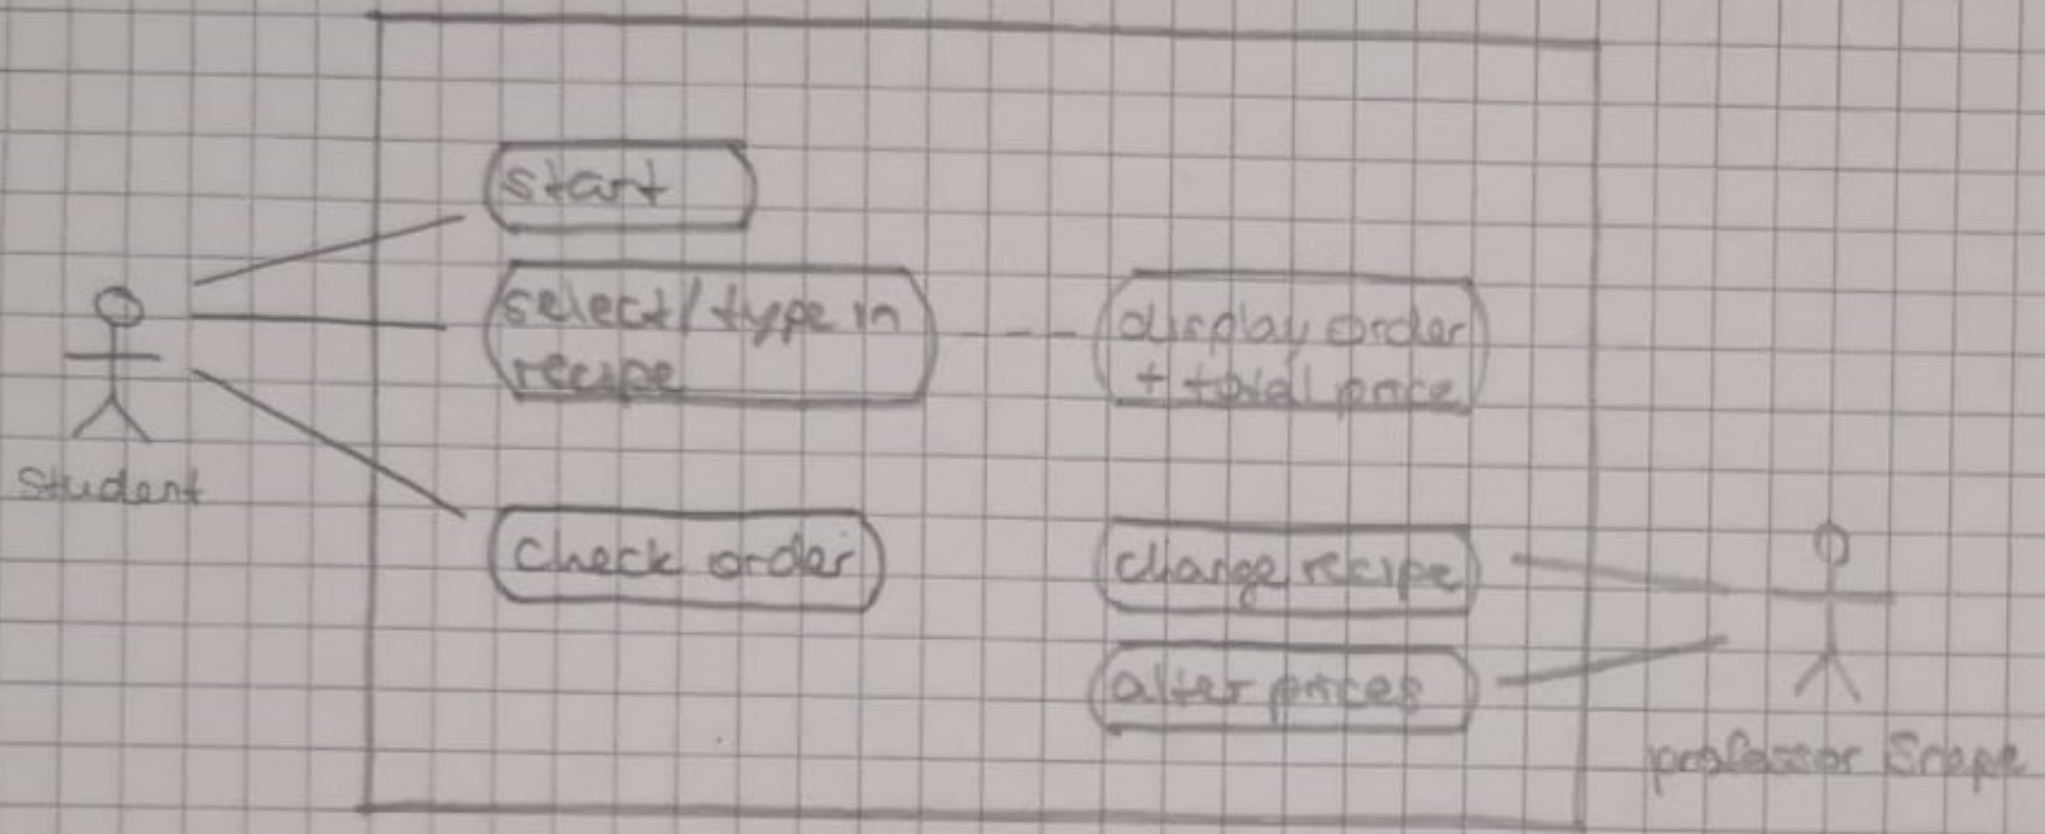 start
select/type in
recipe
display order
+ total price
student
check order
change recipe
alter prices
professor Snape